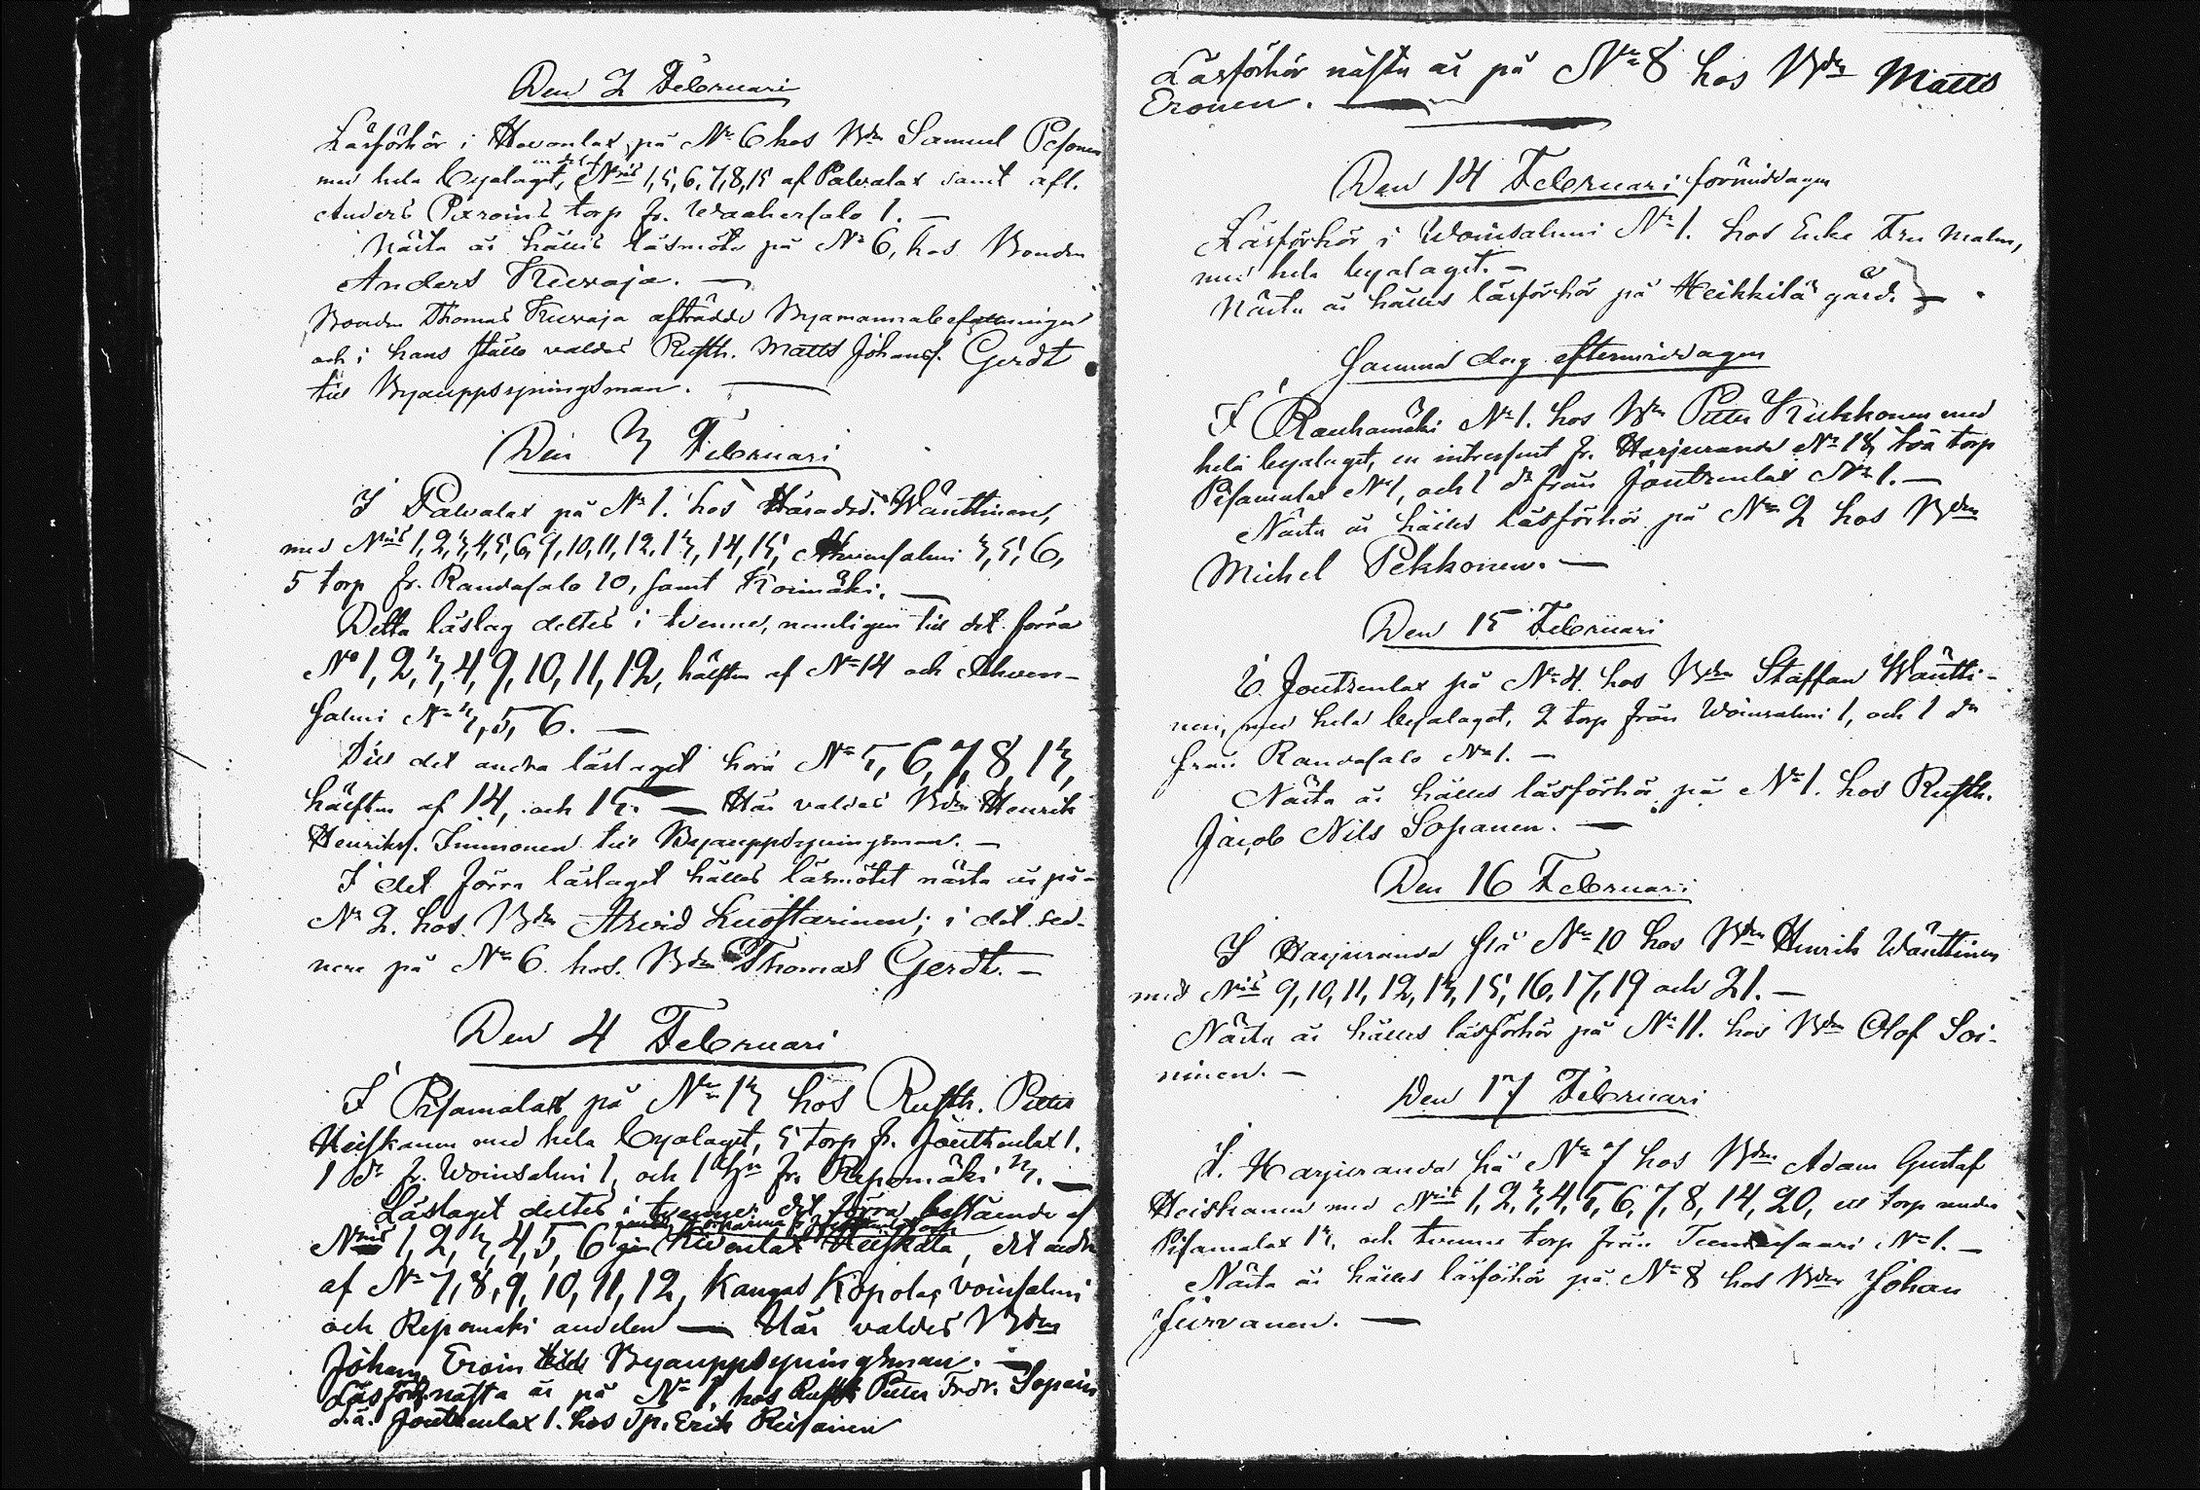 Den 2 Februari
Läsförhör i Hevonlax på No 6 hos Bdn Samuel Pesonen
med hela byalaget, Nris 1, 5, 6, 7, 8, 15 af Palvalax samt afl.
Anders Paroins torp fr. Waahersalo 1. —
Nästa år hålles läsmöte på No 6, hos Bonden
Anders Kuvaja. —
Bonden Thomas Kuvaja afträdde Byamannabefattningen
och i hans ställe valdes Rusth. Matts Johanss. Gerdt
till Byauppsyningsman. —
Den 3 Februari
I Palvalax på No 1. hos Häradsd. Wänttinen,
med Nris 1, 2, 3, 4, 5, 6, 9, 10, 11, 12, 13, 14, 15, Ahvensalmi 3, 5, 6,
5 torp fr. Randasalo 10, samt Koimäki. —
Detta läslag deltes i tvenne, nemligen till det förra
No 1, 2, 3, 4, 9, 10, 11, 12, hälften af No 14 och Ahven-
salmi No 3, 5, 6. —
Till det andra läslaget höra No 5, 6, 7, 8, 13,
hälften af 14, och 15. — Här valdes Bdn Henrik
Henrikss. Immonen till Byauppsyningsman. —
I det förra läslaget hålles läsmötet nästa år på
No 2. hos Bdn Arvid Luostarinen; i det sed-
nare på No 6 hos. Bdn Thomas Gerdt. —
Den 4 Februari
I Pisamalax på No 13 hos Rusth. Petter
Heiskanen med hela byalaget, 5 torp fr. Joutsenlax 1.
1 do fr. Woinsalmi 1, och 1 fr. Repomäki 3. —
Läslaget deltes i tvenne; det förra bestående af
Nris 1, 2, 3, 4, 5, 6 Heiskala, det andra
af No 7, 8, 9, 10, 11, 12, Kangas Kopola, Voinsalmi
och Repomäki andelen — Här valdes Bdn
Johan Eroin till Byauppsyningsman. —
Läsförh. nästa år på No 1, hos Rusth Petter Fredr. Sopain
d.ä. Joutsenlax 1. hos Tp. Erik Reisanen
Läsförhör nästa år på No 8 hos Bdn Matts
Eronen. —
Den 14 Februari förmiddagen
Läsförhör i Woinsalmi No 1. hos Enke Fru Malm,
med hela byalaget. —
Nästa år hålles läsförhör på Heikkilä gård. —
Samma dag eftermiddagen
I Rauhamäki No 1. hos Bdn Petter Kukkonen med
hela byalaget, en intressent fr. Harjuranda No 18, två torp
Pisamalax No 1, och 1 do från Joutsenlax No 1. —
Nästa år hålles läsförhör på No 2 hos Bdn
Michel Pekkonen. —
Den 15 Februari
I Joutsenlax på No 4. hos Bdn Staffan Wäntti-
nen, med hela byalaget, 2 torp från Woinsalmi 1, och 1 do
från Randasalo No 1. —
Nästa år hålles läsförhör på No 1. hos Rusth.
Jacob Nils Sopanen. —
Den 16 Februari
I Harjuranda på No 10 hos Bdn Henrik Wänttinen
med Nris 9, 10, 11, 12, 13, 15, 16, 17, 19 och 21. —
Nästa år hålles läsförhör på No 11. hos Bdn Olof Soi-
ninen. —
Den 17 Februari
I. Harjuranda på No 7 hos Bdn Adam Gustaf
Heiskanen med Nris 1, 2, 3, 4, 5, 6, 7, 8, 14, 20, ett torp under
Pisamalax 13, och tvenne torp från No 1. —
Nästa år hålles läsförhör på No 8 hos Bdn Johan
Jurvanen. —